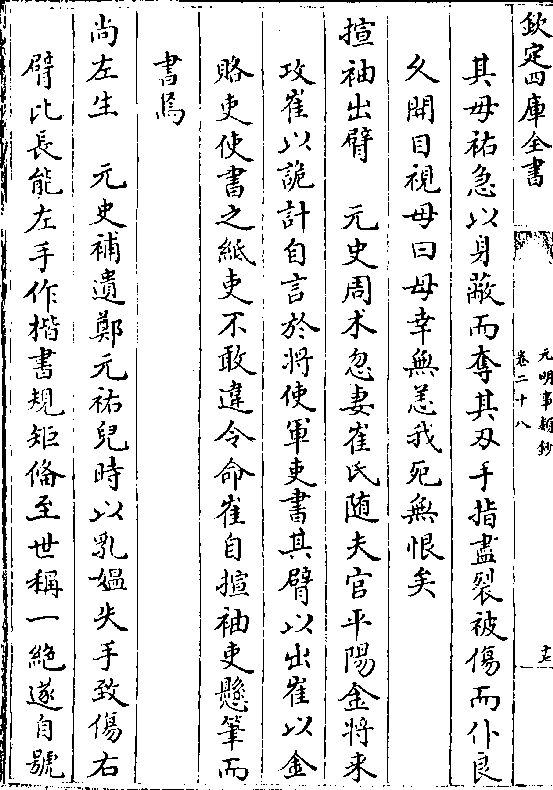 欽定四庫全書
元明事類鈔
卷二十八
其母祐急以身蔽而奪其刃手指盡裂被傷而仆良
久開目視母曰母幸無恙我死無恨矣
揎袖出臂　元史周术忽妻崔氏随夫官平陽金將来
攻崔以詭計自言於將使軍吏書其臂以出崔以金
賂吏使書之紙吏不敢違令命崔自揎袖吏懸筆而
書焉
尚左生　元史補遺鄭元祐兒時以乳媪失手致傷右
臂比長能左手作楷書規矩僃至世稱一絶遂自號